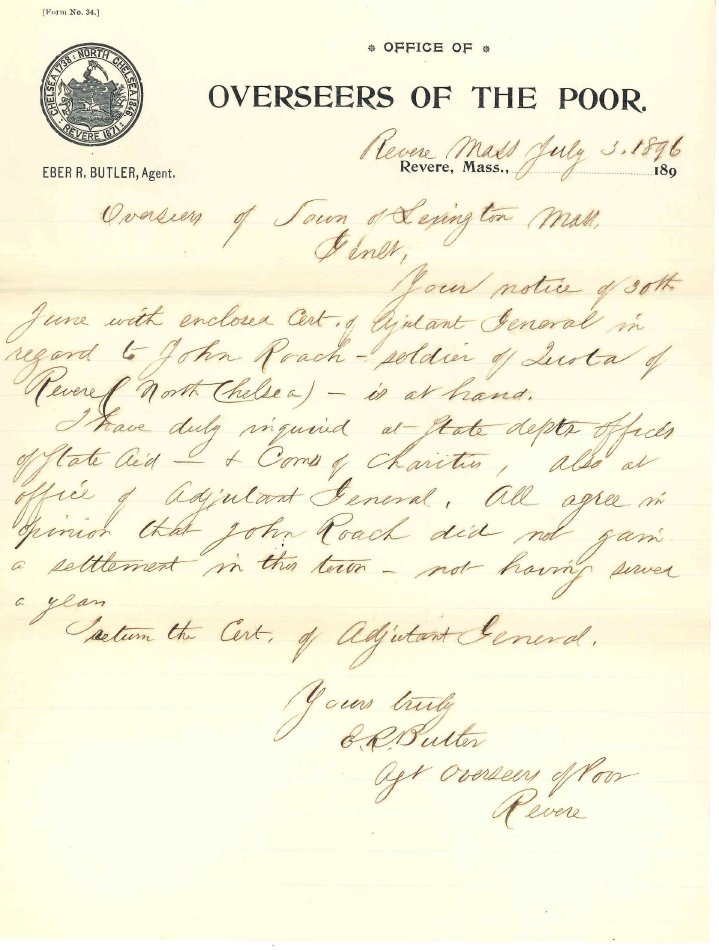 [Form No. 34.]
OFFICE OF
OVERSEERS OF THE POOR.
CHELSEA 1738 : NORTH CHELSEA 1846
REVERE 1871
EBER R. BUTLER, Agent.
Revere Mass July 3. 1896
Revere, Mass., 189
Overseers of Town of Lexington Mass.
Gents,
Your notice of 30th
June with enclosed Cert. of Ajutant General in
regard to John Roach - soldier of Quota of
Revere (North Chelsea) - is at hand.
I have duly inquired at State depts offices
of State Aid - & Coms of Charities, also at
office of Adjutant General. All agree in
opinion that John Roach did not gain
a settlement in this town - not having served
a year
I return the Cert. of Adjutant General.
Yours truly
E. R. Butler
Agt Overseers of Poor
Revere